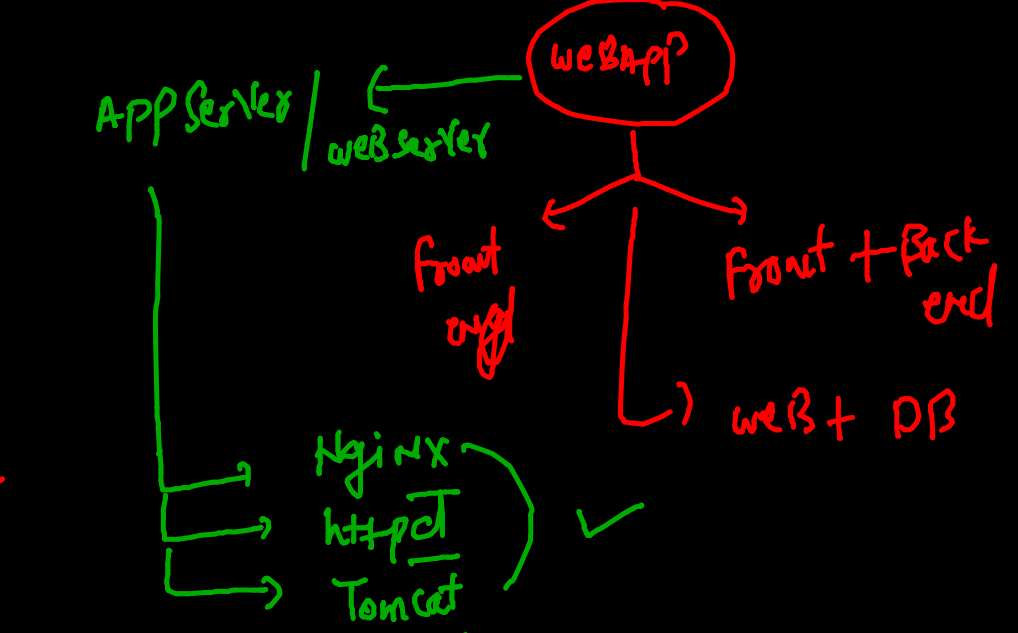 WEBAPP
APPServer/
WEBServer
Front
end
Front + Back
end
WEB + DB
Nginx
httpd
Tomcat